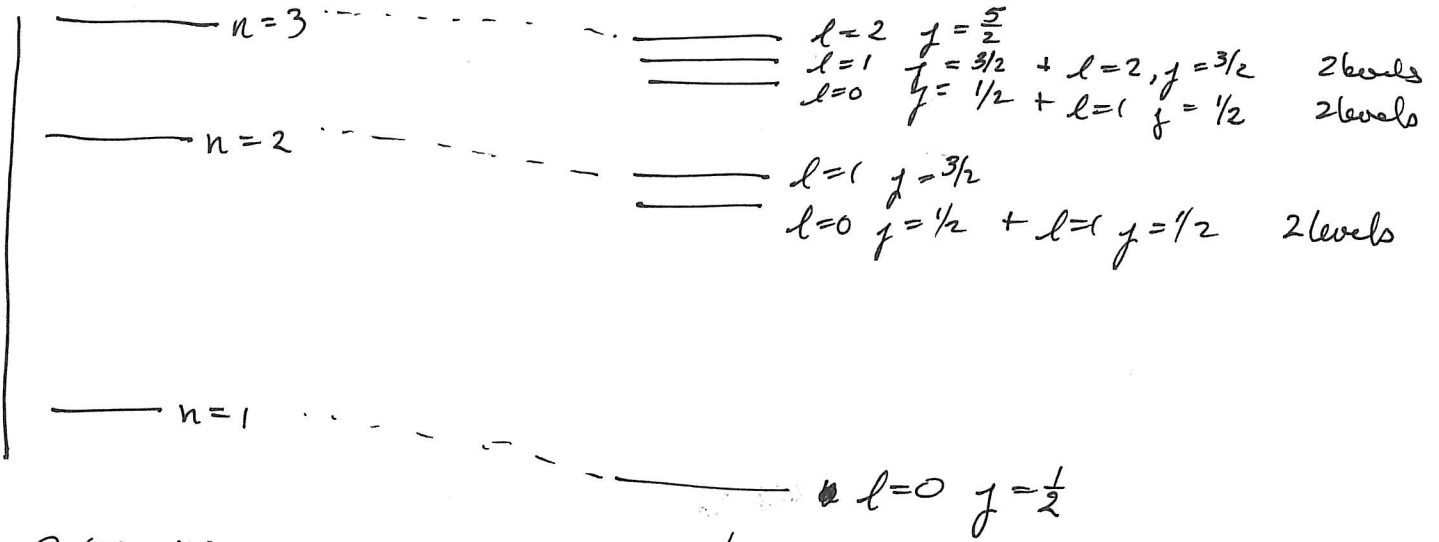 n = 3
l=2 j = 5/2
l=1 j = 3/2 + l=2, j = 3/2 2 levels
l=0 j = 1/2 + l=1 j = 1/2 2 levels
n = 2
l=1 j = 3/2
l=0 j = 1/2 + l=1 j = 1/2 2 levels
n = 1
l=0 j = 1/2